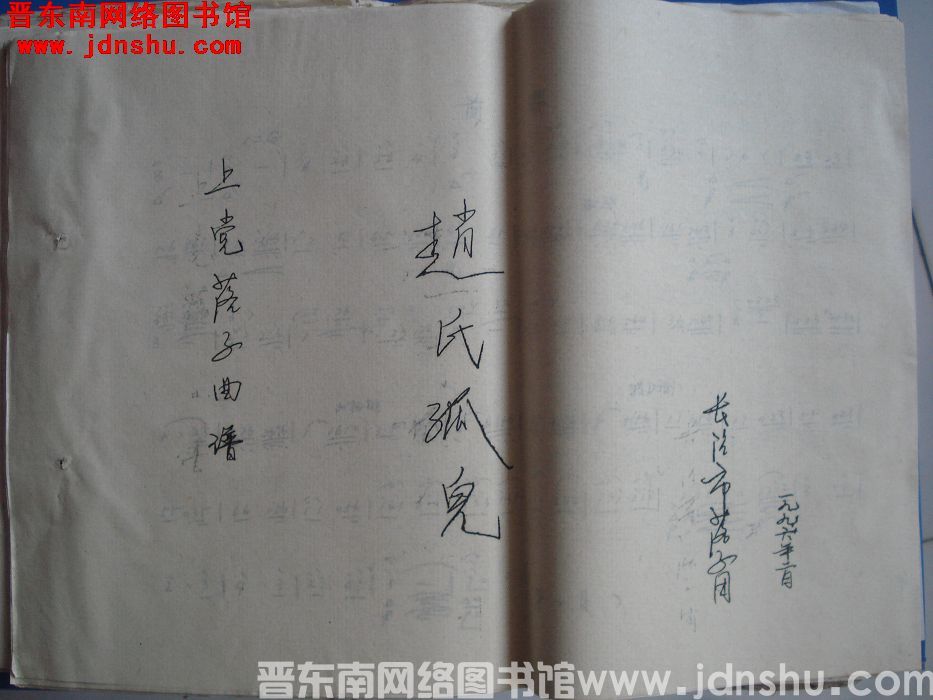 晋东南网络图书馆
www.jdnshu.com
上党落子曲谱
趙氏孤兒
长治市落子团
一九九六年二月
晋东南网络图书馆www.jdnshu.com